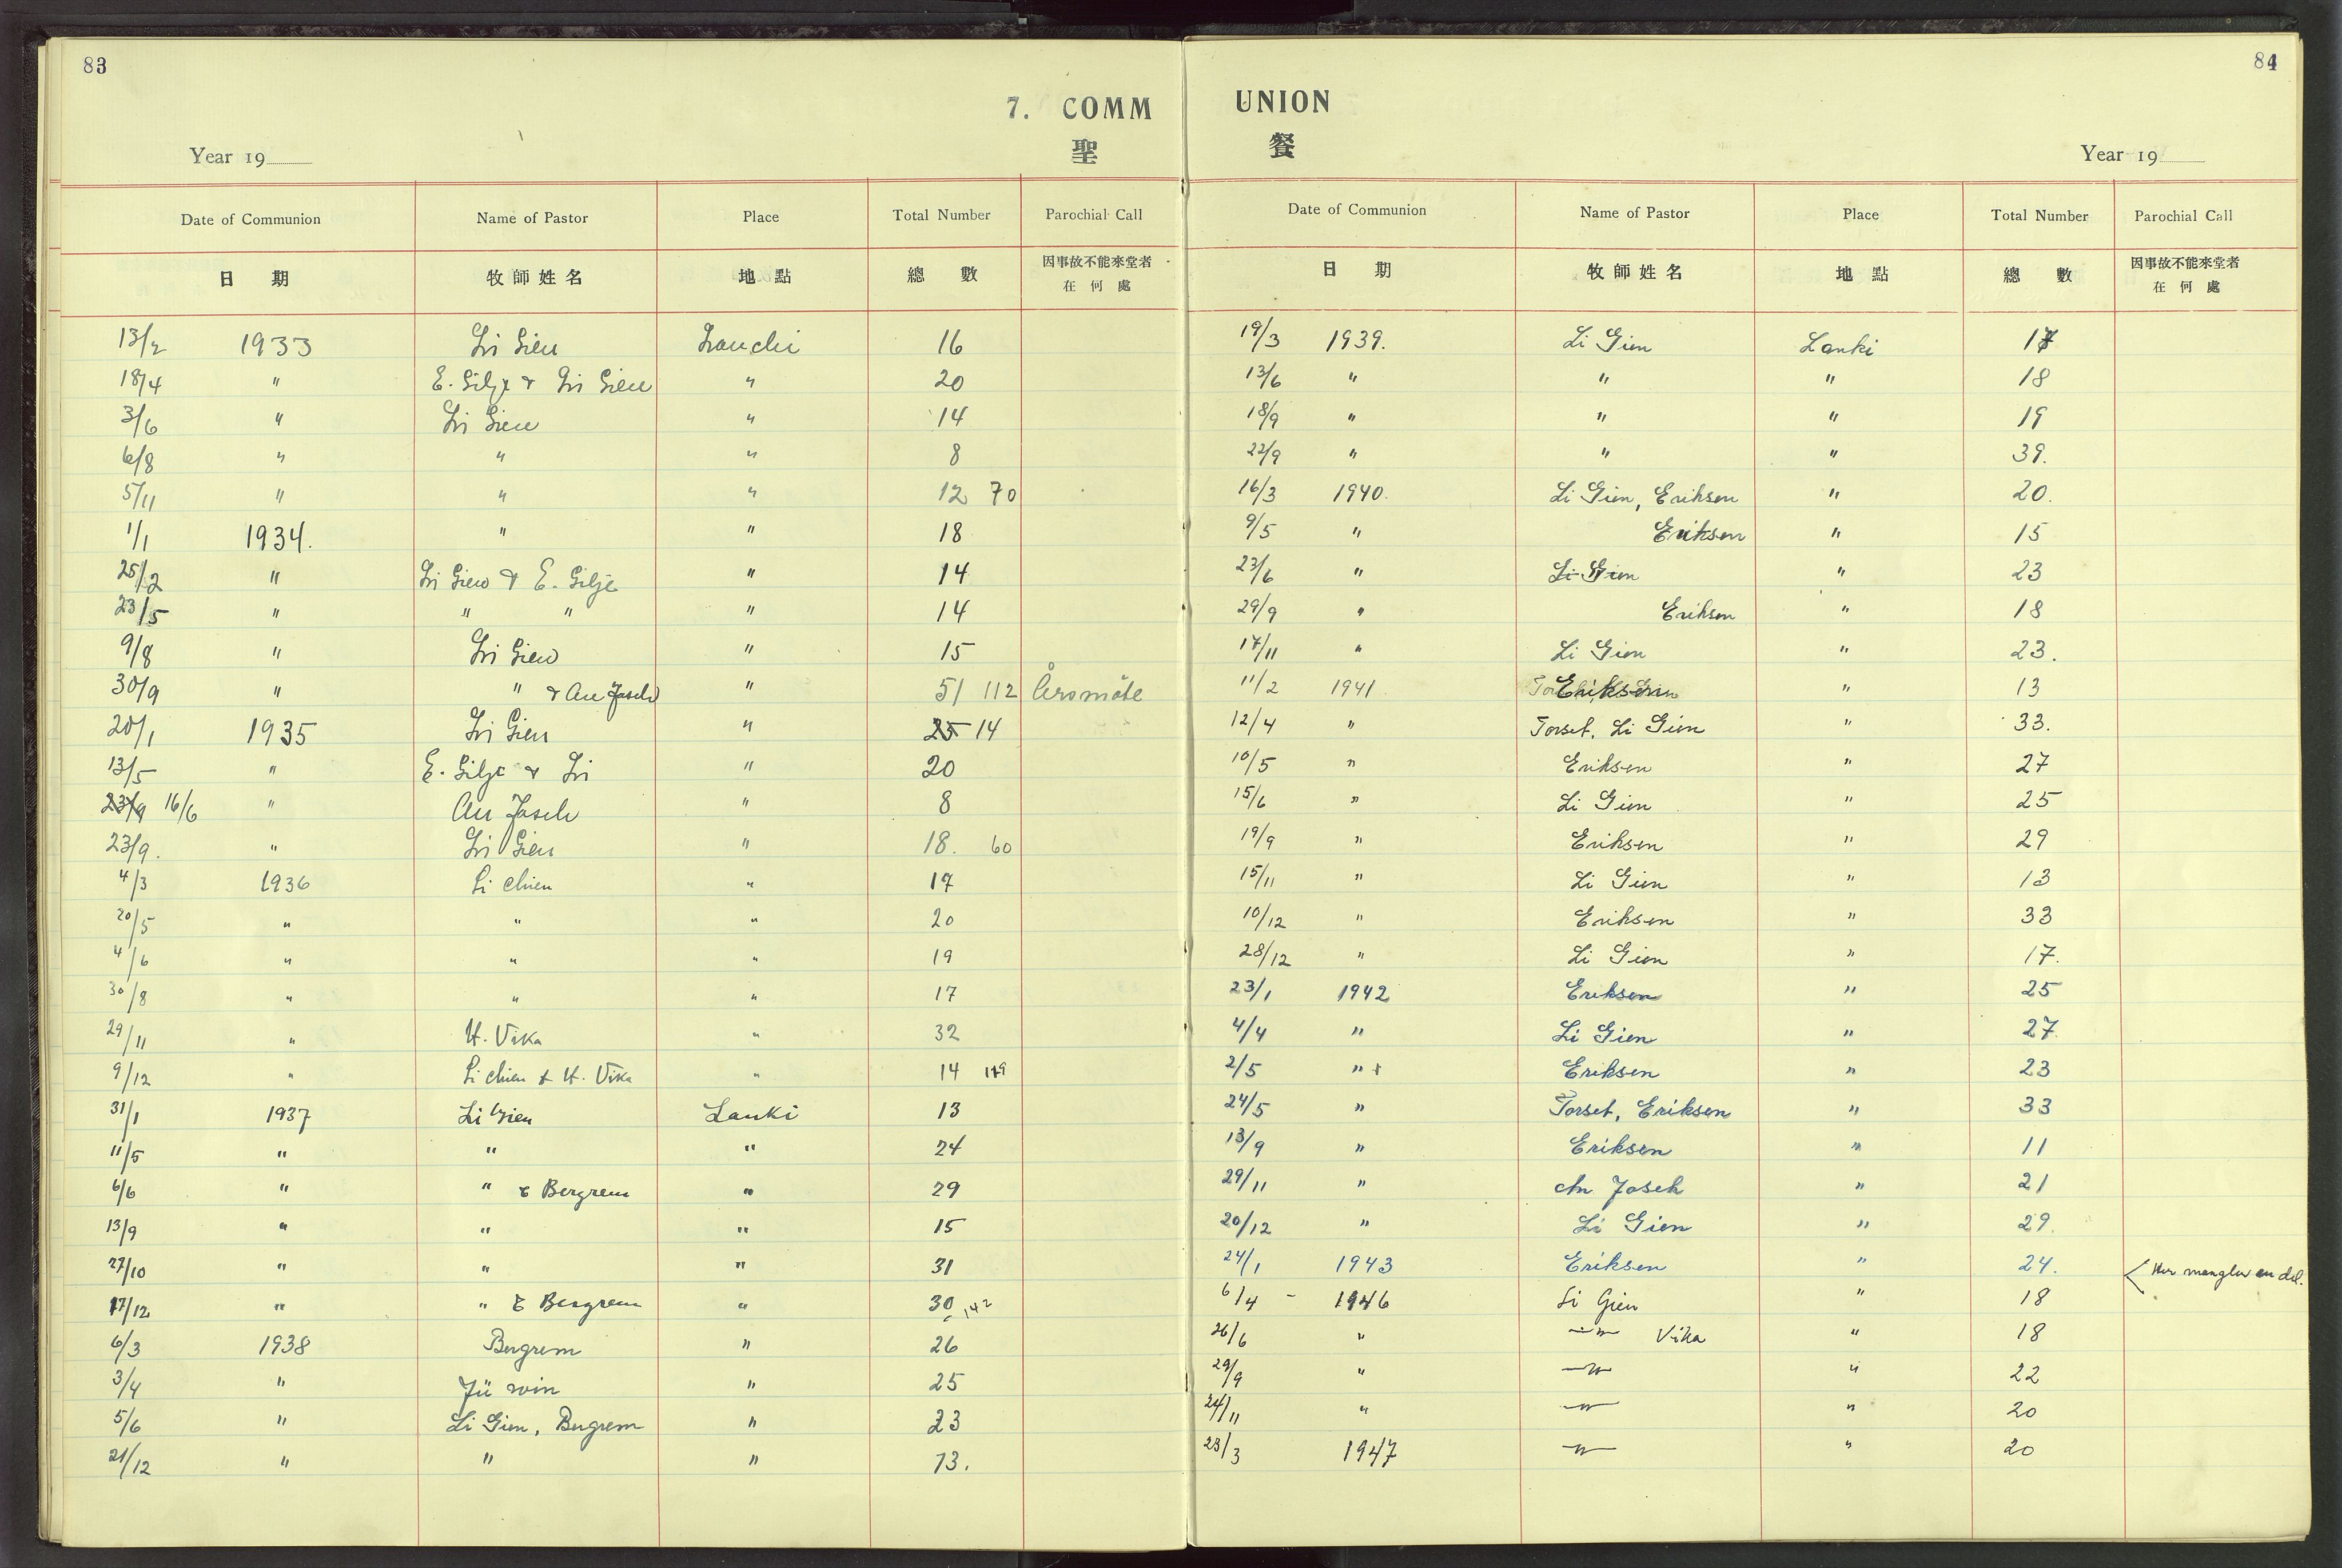 83
7. COMM
聖
Year 19
Date of Communion Name of Pastor Place Total Number Parochial Call
日 期 牧師姓名 地 點 總 數 因事故不能來堂者
在 何 處
13/2 1933 Li Gien Lauchi 16
18/4 " E. Gilje & Li Gien " 20
3/6 " Li Gien " 14
6/8 " " " 8
5/11 " " " 12 70
1/1 1934. " " 18
25/2 " Li Gien & E. Gilje " 14
23/5 " " " " 14
9/8 " Li Gien " 15
30/9 " " & An Joseh " 51 112 Årsmöte
20/1 1935 Li Gien " 25 14
13/5 " E. Gilje & Li " 20
23/9 16/6 " An Joseh " 8
23/9. " Li Gien " 18. 60
4/3 1936 Li Chien " 17
20/5 " " " 20
4/6 " " " 19
30/8 " " " 17
29/11 " H. Vika " 32
9/12 " Li Chien & H. Vika " 14 119
31/1 1937 Li Gien Lauki 13
11/5 " " " 24
6/6 " " & Bergrem " 29
13/9 " " " 15
27/10 " " " 31
17/12 " " & Bergrem " 30 142
6/3 1938 Bergrem " 26
3/4 " Jü win " 25
5/6 " Li Gien, Bergrem " 23
21/12 " " " 13.
84
UNION
餐
Year 19
Date of Communion Name of Pastor Place Total Number Parochial Call
日 期 牧師姓名 地 點 總 數 因事故不能來堂者
在 何 處
19/3 1939. Li Gien Lanki 17
13/6 " " " 18
18/9 " " " 19
22/9 " " " 39.
16/3 1940. Li Gien, Eriksen " 20.
9/5 " Eriksen " 15
23/6 " Li Gien " 23
29/9 " Eriksen " 18
17/11 " Li Gien " 23.
11/2 1941 Eriksen " 13
12/4 " Torset, Li Gien " 33.
10/5 " Eriksen " 27
15/6 " Li Gien " 25
19/9 " Eriksen " 29
15/11 " Li Gien " 13
10/12 " Eriksen " 33
28/12 " Li Gien " 17.
23/1 1942 Eriksen " 25
4/4 " Li Gien " 27.
2/5 " Eriksen " 23
24/5 " Torset, Eriksen " 33
13/9 " Eriksen " 11
29/11 " An Joseh " 21
20/12 " Li Gien " 29.
24/1 1943 Eriksen " 24. < Her mangler en del.
6/4 - 1946 Li Gien " 18
26/6 " —"— Vika " 18
29/9 " —"— " 22
24/11 " —"— " 20
23/3 1947 —"— " 20